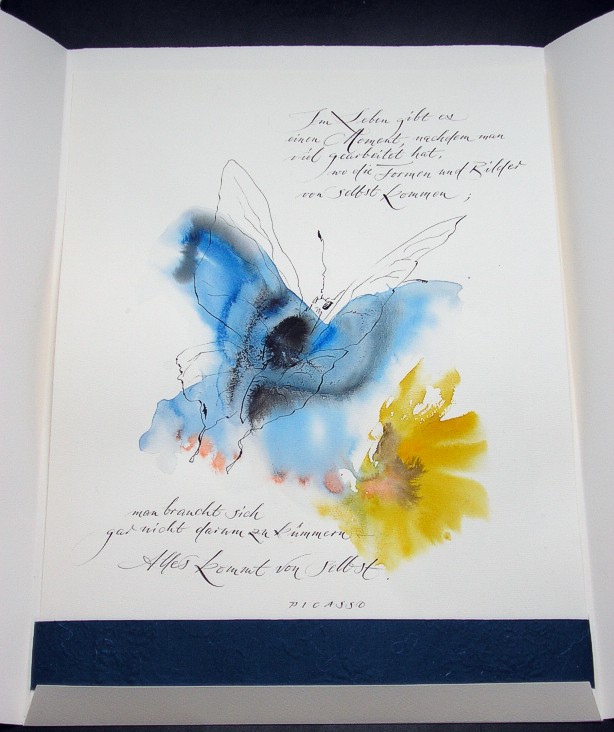 Im Leben gibt es
einen Moment, nachdem man
viel gearbeitet hat,
wo die Formen und Bilder
von selbst kommen;
man braucht sich
gar nicht darum zu kümmern –
Alles kommt von selbst.
PICASSO